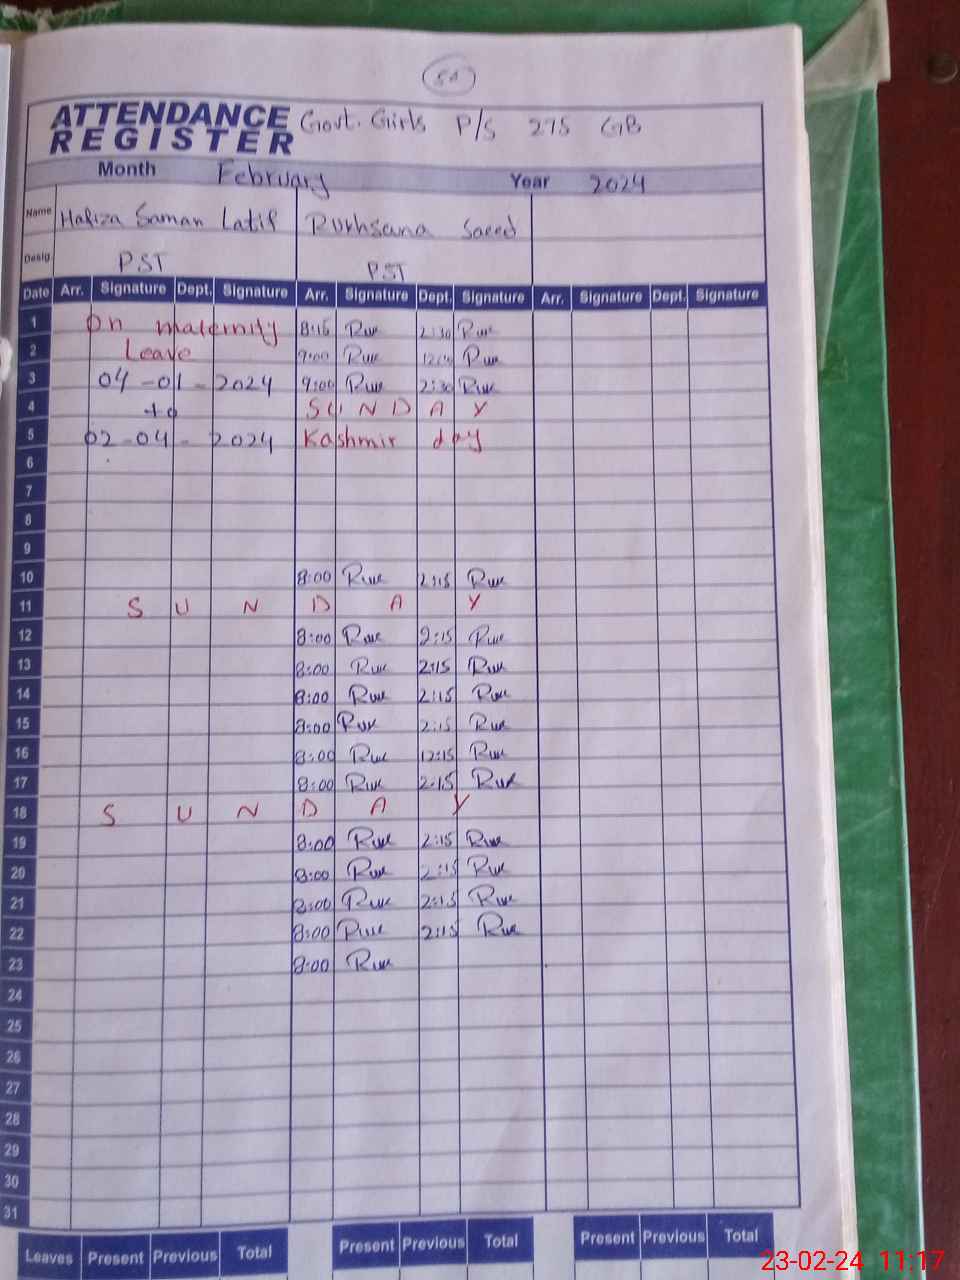 ATTENDANCE REGISTER Govt. Girls P/S 275 GB
Month February Year 2024
Name Hafiza Saman Latif Rukhsana Saeed
Desig. PST PST
Date Arr. Signature Dept. Signature Arr. Signature Dept. Signature Arr. Signature Dept. Signature
1 On maternity 8:15 Ruk 2:30 Ruk
2 Leave 9:00 Ruk Ruk
3 04-01-2024 9:00 Ruk 2:30 Ruk
4 to SUNDAY
5 02-04-2024 Kashmir day
6
7
8
9
10 8:00 Ruk 2:15 Ruk
11 SUNDAY
12 8:00 Ruk 2:15 Ruk
13 8:00 Ruk 2:15 Ruk
14 8:00 Ruk 2:15 Ruk
15 8:00 Ruk 2:15 Ruk
16 8:00 Ruk 12:15 Ruk
17 8:00 Ruk 2:15 Ruk
18 SUNDAY
19 8:00 Ruk 2:15 Ruk
20 8:00 Ruk 2:15 Ruk
21 8:00 Ruk 2:15 Ruk
22 8:00 Ruk 2:15 Ruk
23 8:00 Ruk
24
25
26
27
28
29
30
31
Leaves Present Previous Total Present Previous Total Present Previous Total
23-02-24 11:17